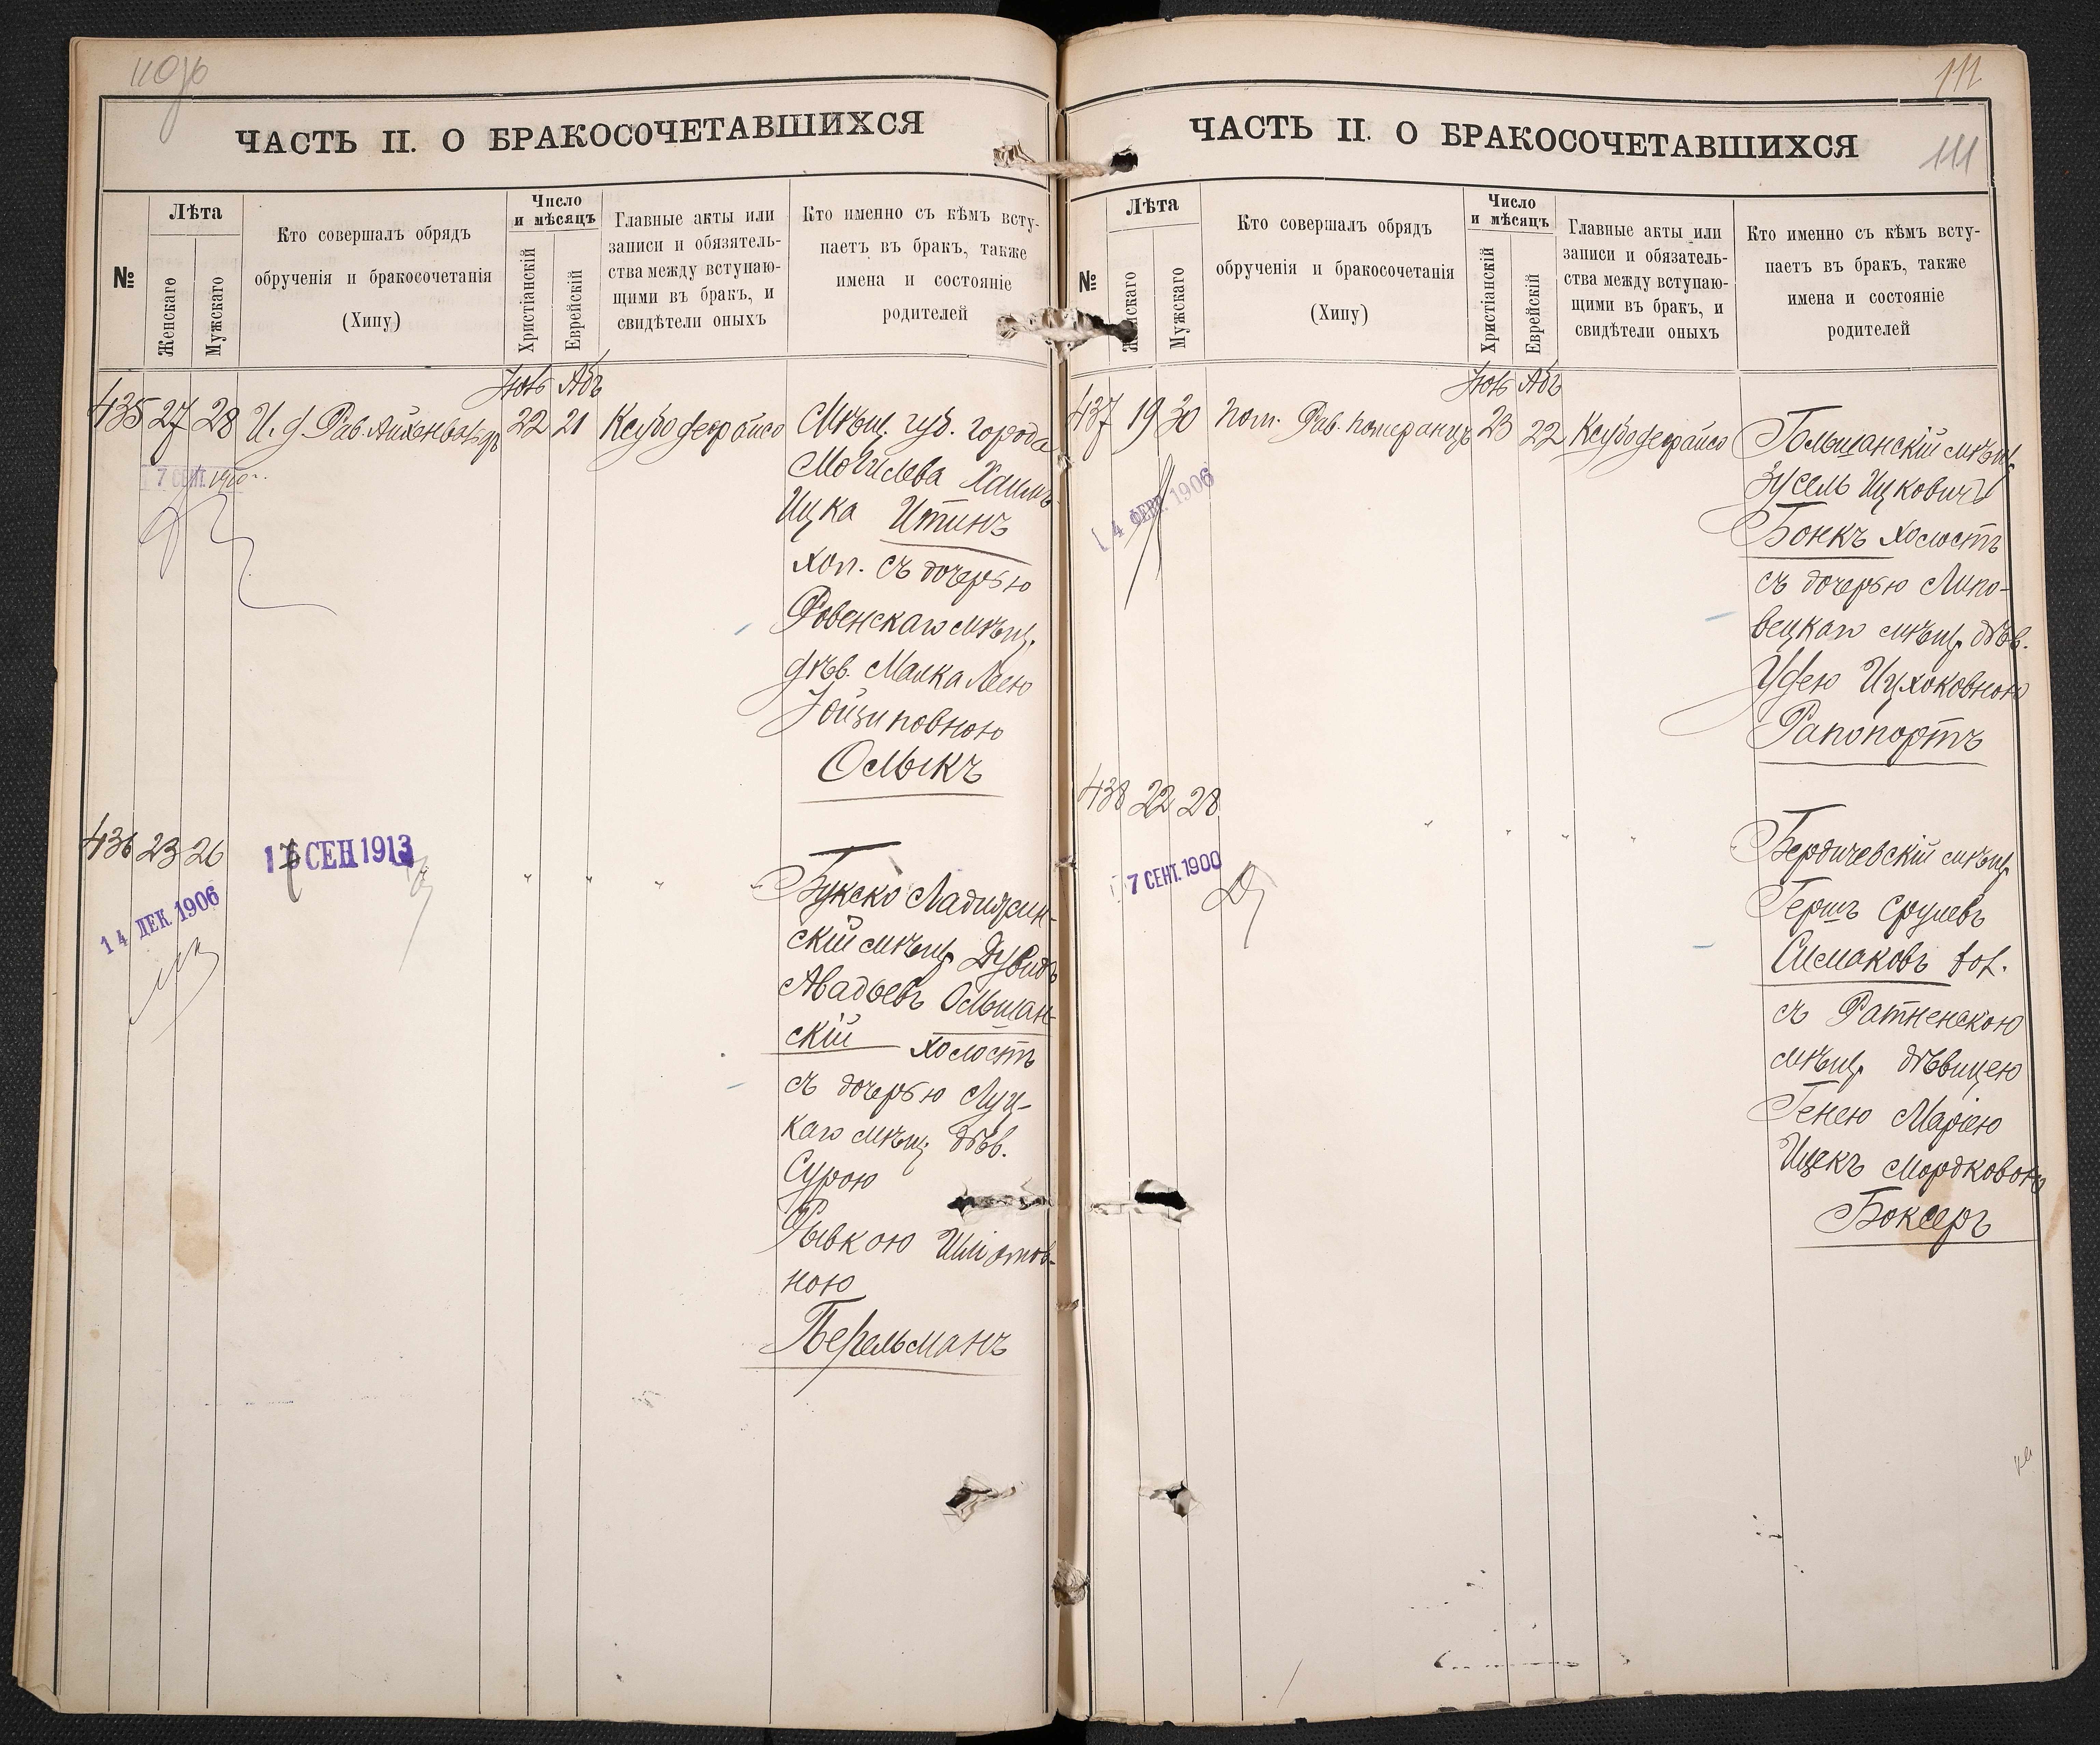 110 об
ЧАСТЬ II. О БРАКОСОЧЕТАВШИХСЯ
№
Лѣта
Женскаго
Мужскаго
Кто совершалъ обрядъ
обрученія и бракосочетанія
(Хипу)
Число
и мѣсяцъ
Христіанскій
Еврейскій
Главные акты или
записи и обязатель-
ства между вступаю-
щими въ бракъ, и
свидѣтели оныхъ
Кто именно съ кѣмъ всту-
паетъ въ бракъ, также
имена и состояніе
родителей
Абъ
435 27 28 И. д. Рав. 22 21
7 СЕНТ.
Мѣщ. губ. города
Могилева Хаимъ
Ицка Итинъ
хол. съ дочерью
Ровенскаго мѣщ.
дѣв. Малка Леею
Іойзиповною
Олыкъ
436 23 26
СЕН 1913
14 ДЕК. 1906
" " " "
Букско
скій мѣщ. Дувидъ
Авадьевъ Ольшан-
скій холостъ
съ дочерью Луц-
каго мѣщ. дѣв.
Сурою
Рывкою
ною
Перельманъ
111
ЧАСТЬ II. О БРАКОСОЧЕТАВШИХСЯ
111
№
Лѣта
Женскаго
Мужскаго
Кто совершалъ обрядъ
обрученія и бракосочетанія
(Хипу)
Число
и мѣсяцъ
Христіанскій
Еврейскій
Главные акты или
записи и обязатель-
ства между вступаю-
щими въ бракъ, и
свидѣтели оныхъ
Кто именно съ кѣмъ всту-
паетъ въ бракъ, также
имена и состояніе
родителей
Абъ
437 19 30 пом. Рав. Померанцъ 23 22
14 ФЕВР. 1906
Гольшанскій мѣщ.
Зусель Ицковичъ
Бонкъ холостъ
съ дочерью Липо-
вецкаго мѣщ. дѣв.
Удею Ицхоковною
Рапопортъ
438 22 28
7 СЕНТ. 1900
" " " "
Бердичевскій мѣщ.
Гершъ Срулевъ
Симаковъ хол.
съ Ратненскою
мѣщ. дѣвицею
Генею Маріею
Ицекъ Мордковою
Боксеръ